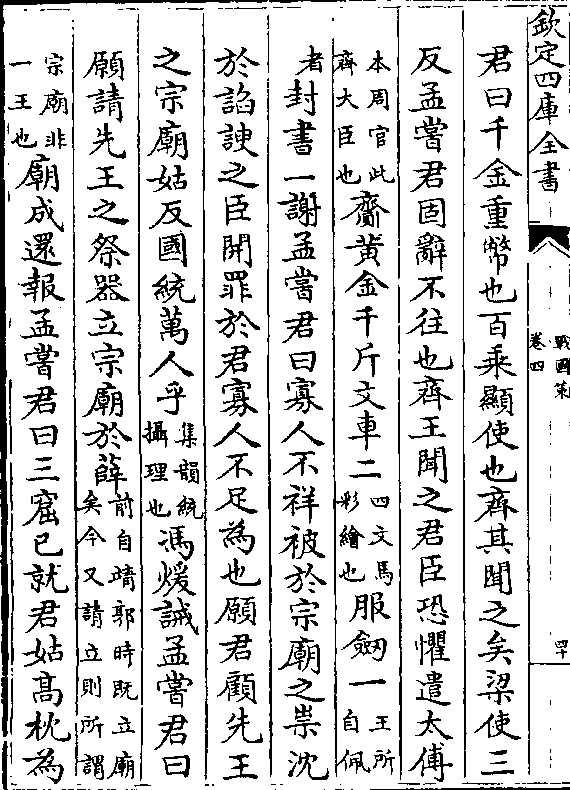 欽定四庫全書
戰國策
卷四
四十
君曰千金重幣也百乘顯使也齊其聞之矣梁使三
反孟嘗君固辭不往也齊王聞之君臣恐懼遣太傅
本周官此
齊大臣也
齎黄金千斤文車二
四文馬
彩繪也
服劒一
王所
自佩
者
封書一謝孟嘗君曰寡人不祥被於宗廟之祟沈
於諂諛之臣開罪於君寡人不足為也願君顧先王
之宗廟姑反國統萬人乎
集韻統
攝理也
馮煖誡孟嘗君曰
願請先王之祭器立宗廟於薛
前自靖郭時既立廟
矣今又請立則所謂
宗廟非
一王也
廟成還報孟嘗君曰三窟已就君姑髙枕為